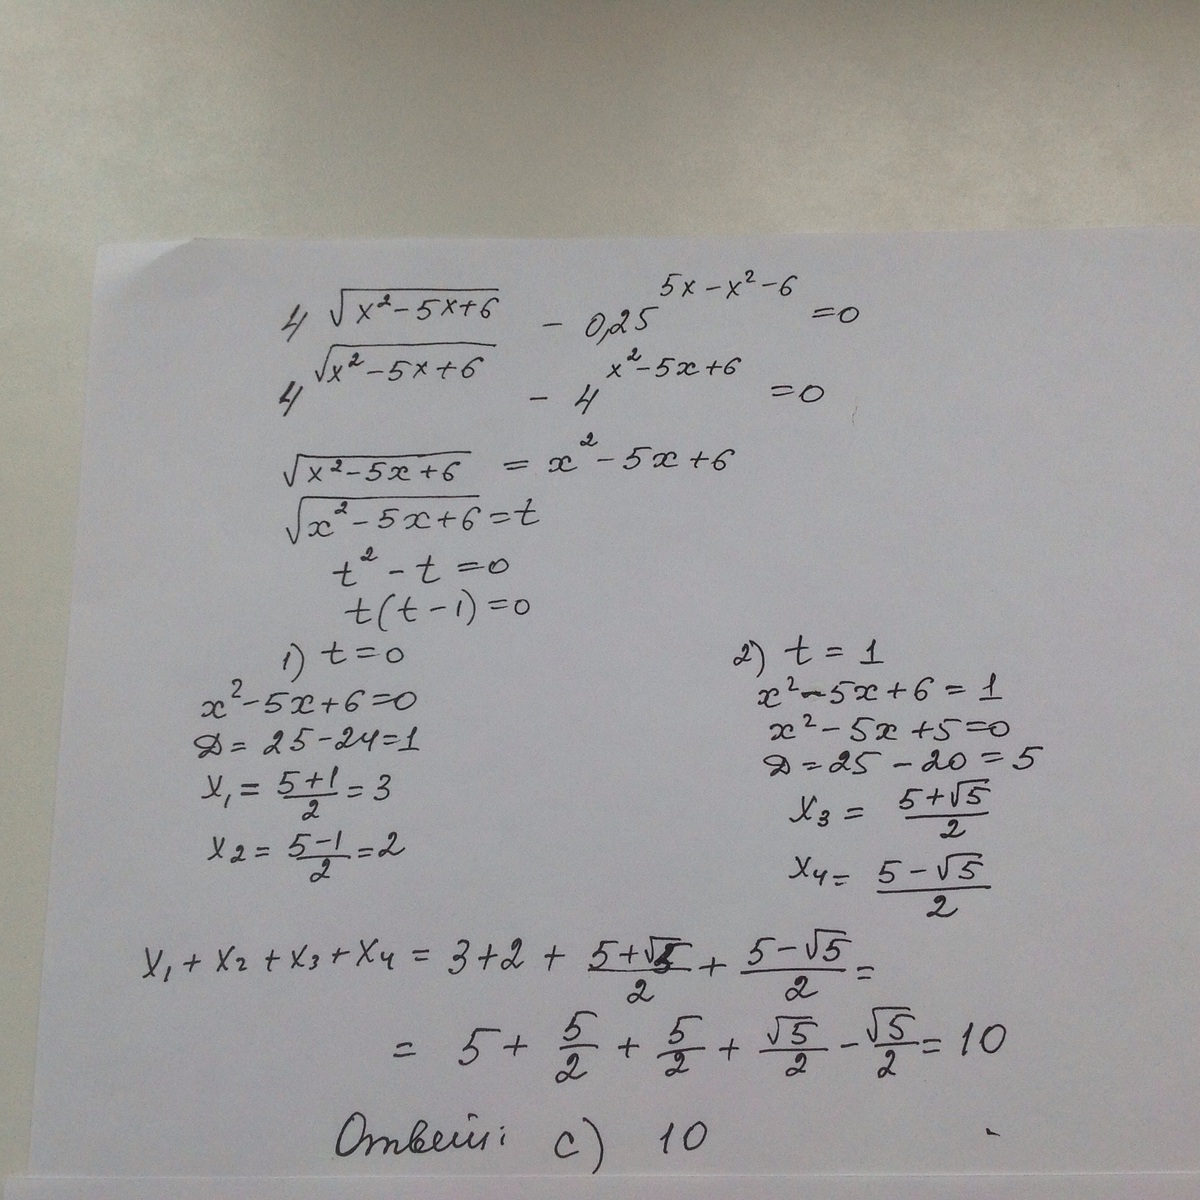 4^√(x²-5x+6) - 0,25^(5x-x²-6) =0
4^√(x²-5x+6) - 4^(x²-5x+6) =0
√(x²-5x+6) = x²-5x+6
√(x²-5x+6)=t
t²-t=0
t(t-1)=0
1) t=0
x²-5x+6=0
D=25-24=1
x₁=(5+1)/2=3
x₂=(5-1)/2=2
2) t=1
x²-5x+6=1
x²-5x+5=0
D=25-20=5
x₃=(5+√5)/2
x₄=(5-√5)/2
x₁+x₂+x₃+x₄=3+2+(5+√5)/2+(5-√5)/2=
=5+5/2+5/2+√5/2-√5/2=10
Ответ: c) 10